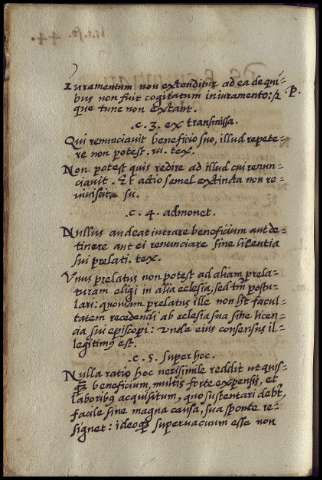 Iuramentum non extenditur ad ea de qui=
bus non fuit cogitatum in iuramento: &
que tunc non extabt.
.c. 3. ex transmissa.
Qui renunciavit beneficio suo, illud repete=
re non potest. tex.
Non potest quis redire ad illud cui renun=
ciavit. Et actio semel extincta non re=
viviscit.
.c. 4. admonet.
Nullus audeat intrare beneficium aut de=
tinere aut ei renunciare sine licentia
sui prelati. tex.
Unus prelatus non potest ad aliam prela=
turam eligi in alia eclesia, sed tm postu=
lari: quoniam prelatus ille non ist facul=
tatem recedendi ab eclesia sua sine licen=
da sui episcopi: Unde eius consensus il=
legitimus est.
.c. 5. super hoc.
Nulla ratio hoc verisimile reddit ut quis=
beneficium, multis forte expensis, et
laboribus acquisitum, quo sustentari debt,
facile sine magna causa, sua sponte re=
signet: ideoque supervacuum esse non